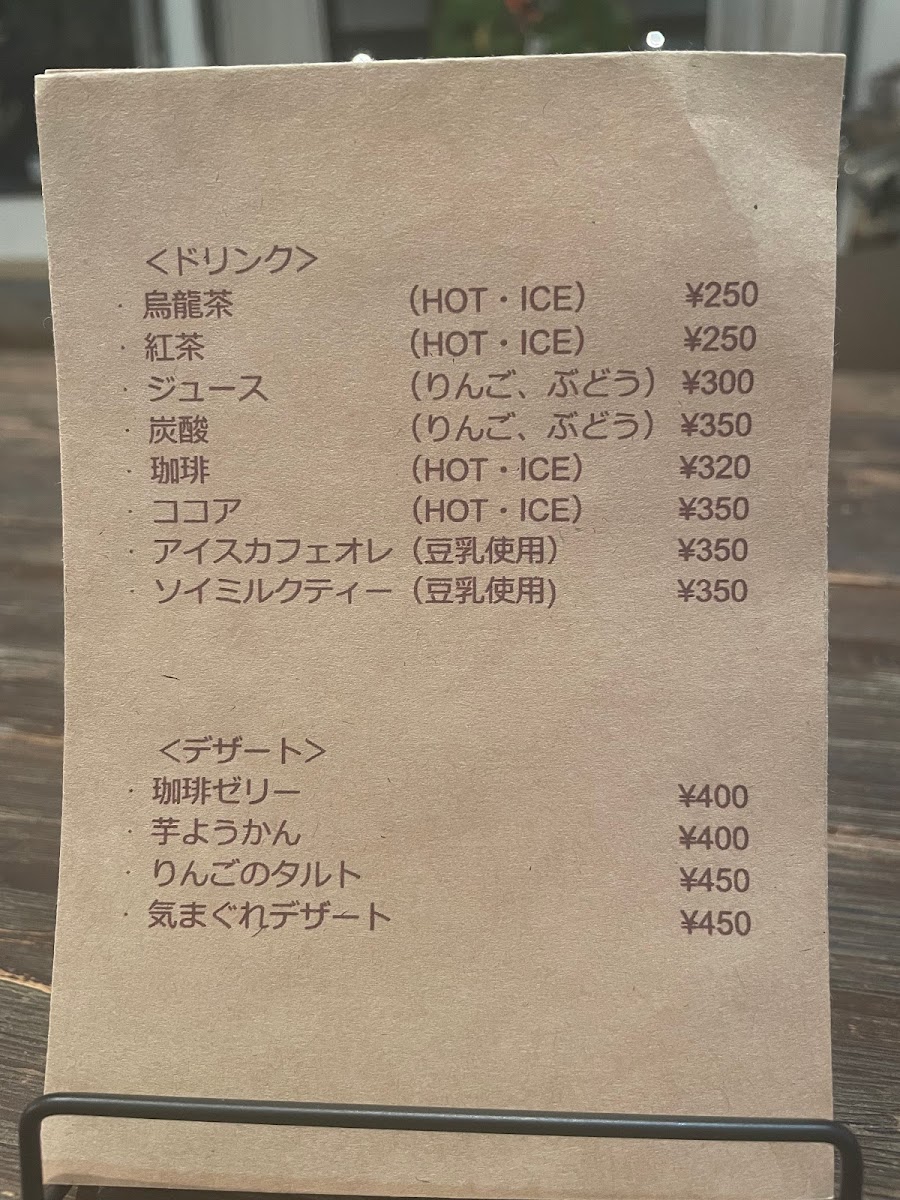 ＜ドリンク＞
・烏龍茶 （HOT・ICE） ¥250
・紅茶 （HOT・ICE） ¥250
・ジュース （りんご、ぶどう） ¥300
・炭酸 （りんご、ぶどう） ¥350
・珈琲 （HOT・ICE） ¥320
・ココア （HOT・ICE） ¥350
・アイスカフェオレ（豆乳使用） ¥350
・ソイミルクティー（豆乳使用) ¥350
＜デザート＞
・珈琲ゼリー ¥400
・芋ようかん ¥400
・りんごのタルト ¥450
・気まぐれデザート ¥450